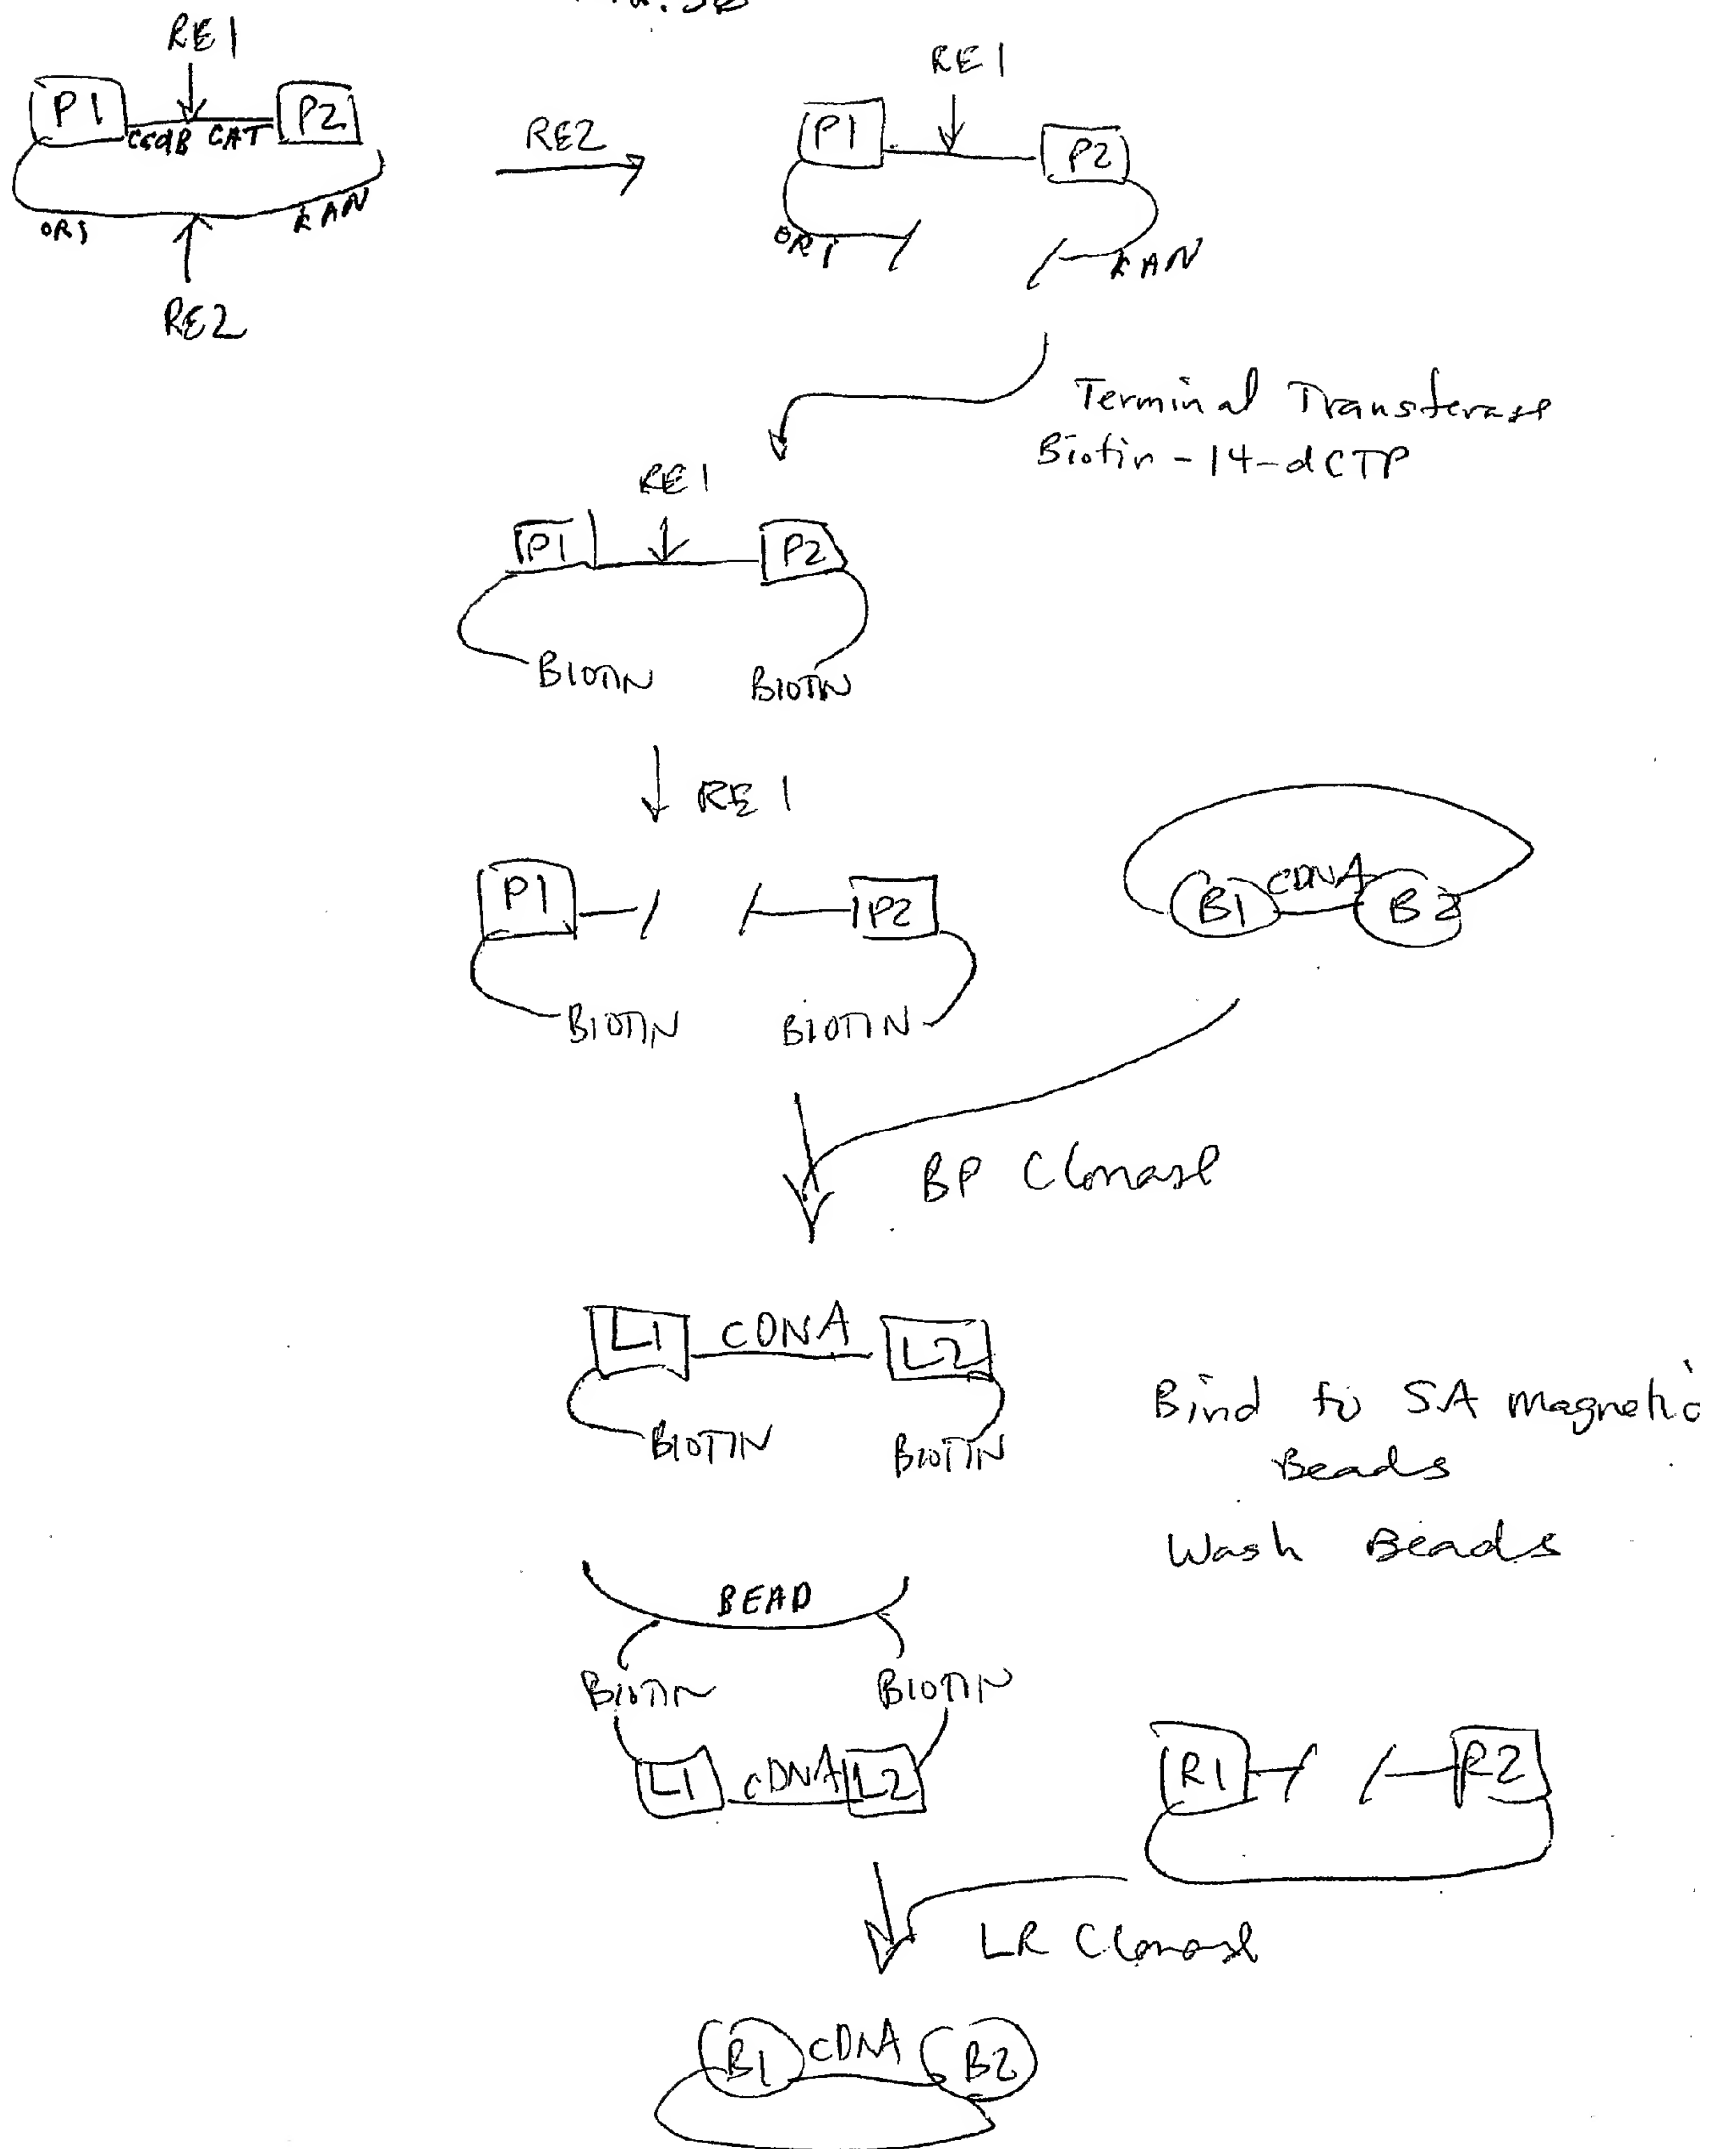 RE1
P1
P2
CcdB CAT
ORI
KAN
RE2
RE2
RE1
P1
P2
ORI
KAN
Terminal Transferase
Biotin-14-dCTP
RE1
P1
P2
BIOTIN
BIOTIN
RE1
P1
P2
BIOTIN
BIOTIN
B1
cDNA
B2
BP Clonase
L1
cDNA
L2
BIOTIN
BIOTIN
Bind to SA magnetic
Beads
Wash Beads
BEAD
BIOTIN
BIOTIN
L1
cDNA
L2
R1
R2
LR Clonase
B1
cDNA
B2